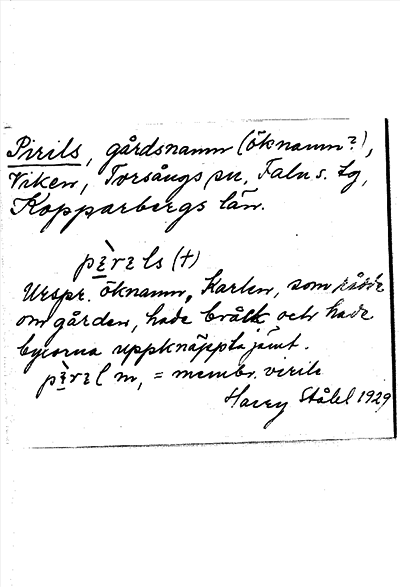 Pirils, gårdsnamn (öknamn?),
Viken, Torsångs sn, Falu s. lg,
Kopparbergs län.
pɪ̀rɪls (†)
Urspr. öknamn. Karlen, som rådde
om gården, hade bråck och hade
byxorna uppknäppta jämt.
pɪ̀rɪl m, = membr. virile
Harry Ståhl 1929